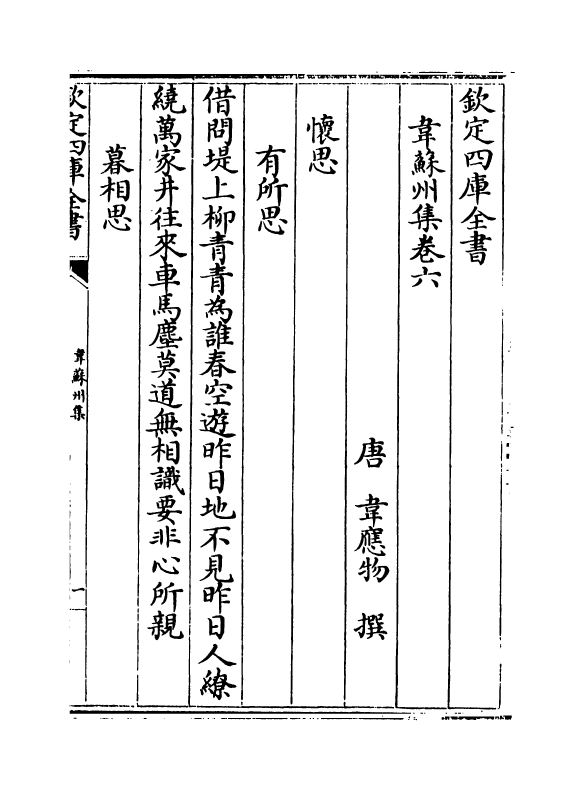 欽定四庫全書
韋蘇州集卷六
唐 韋應物 撰
懷思
有所思
借問堤上柳青青為誰春空遊昨日地不見昨日人繚
繞萬家井往來車馬塵莫道無相識要非心所親
暮相思
欽定四庫全書
韋蘇州集
一